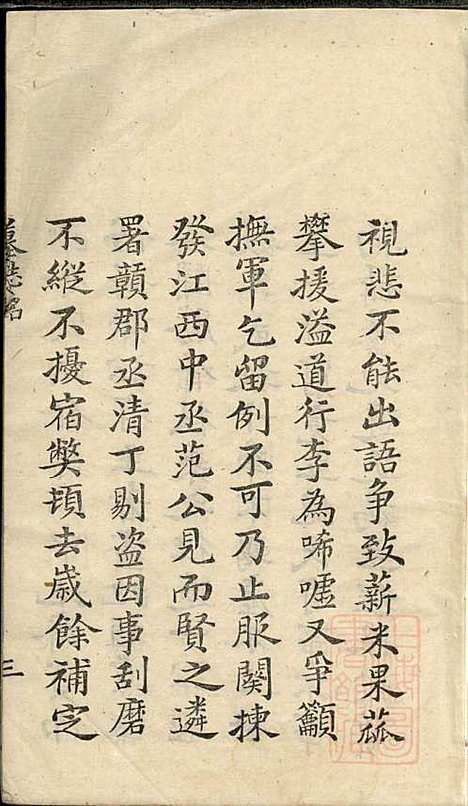 視悲不能出語争致薪米果蓏
攀援溢道行李為唏噓又爭籲
撫軍乞留例不可乃止服闋揀
發江西中丞范公見而賢之遴
署贛郡丞清丁剔盗因事刮磨
不縱不擾宿弊頓去歲餘補定
墓誌銘
三